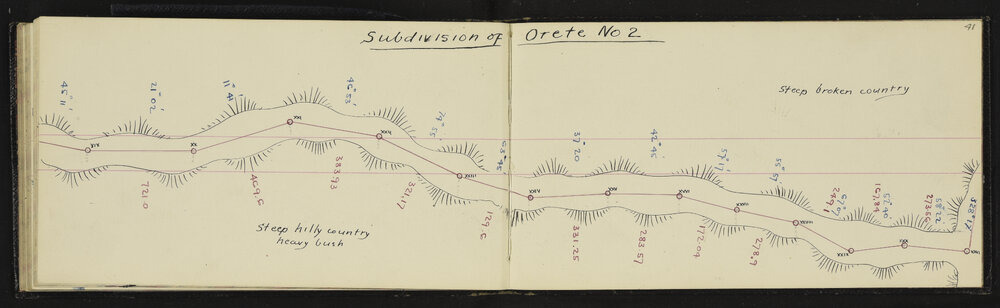 Subdivision of Orete No 2
41
steep broken country
46° 11'
21° 02'
11° 41'
46° 53'
74° 55'
63° 45'
37° 20'
42° 45'
57° 17'
55° 57'
67° 07'
52° 40'
58° 22'
328° 17'
XIX
XX
XXI
XXII
XXIII
XXIV
XXV
XXVI
XXVII
XXVIII
XXIX
XXX
721.0
409.5
383.93
321.17
129.6
331.25
283.57
172.09
278.9
249.1
167.84
273.66
steep hilly country
heavy bush